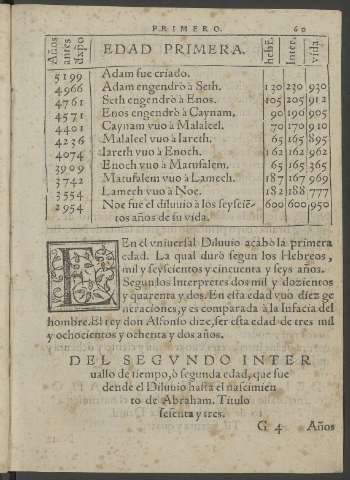 PRIMERO. 60
Años antes dxpo EDAD PRIMERA. hebre. Inter. vida
5199 Adam fue criado.
4966 Adam engendrò à Seth. 130 230 930
4761 Seth engendrò à Enos. 105 205 912
4571 Enos engendrò à Caynam. 90 190 905
4401 Caynam vuo à Malaleel. 70 170 910
4236 Malaleel vuo à Iareth. 65 165 895
4074 Iareth vuo à Enoch. 162 162 962
3909 Enoch vuo à Matusalem. 65 165 365
3742 Matusalem vuo à Lamech. 187 167 969
3554 Lamech vuo à Noe. 182 188 777
2954 Noe fue el diluuio à los seyscië- 600 600 950
tos años de su vida.
EN el vniuersal Diluuio acabò la primera
edad. La qual durò segun los Hebreos,
mil y seyscientos y cincuenta y seys años.
Segun los Interpretes dos mil y dozientos
y quarenta y dos. En esta edad vuo diez ge
neraciones, y es comparada à la Infācia del
hombre. El rey don Alfonso dize, ser esta edad de tres mil
y ochocientos y ochenta y dos años.
DEL SEGVNDO INTER
uallo de tiempo, ò segunda edad, que fue
dende el Diluuio hasta el nascimien
to de Abraham. Titulo
sesenta y tres.
G 4 Años